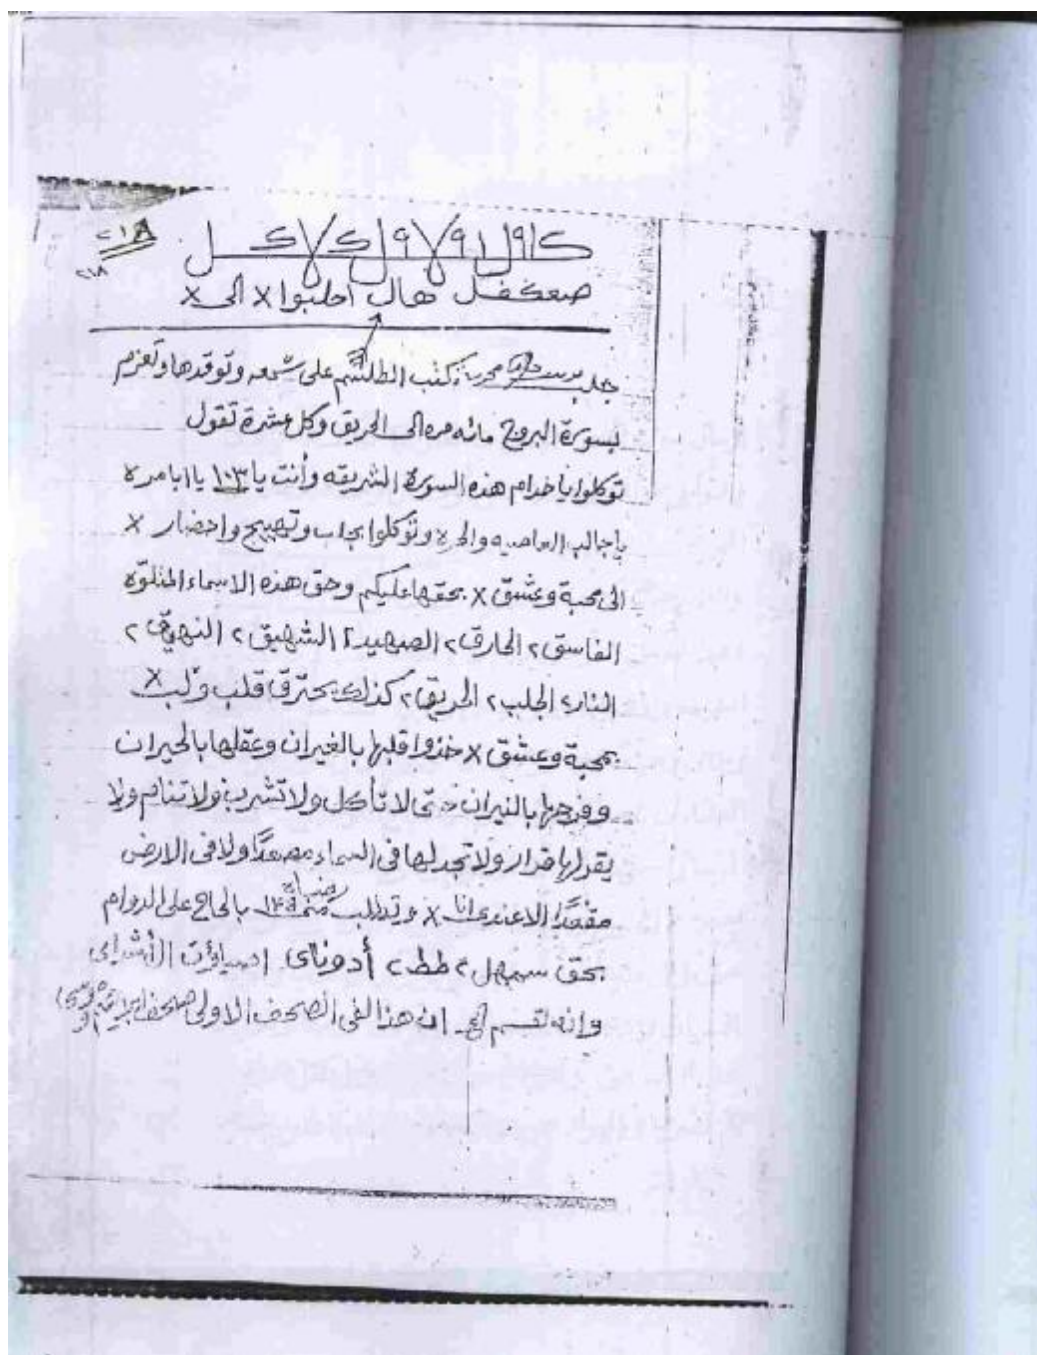 ٢١٨
٢١٨
صعكفل هالب اجلبوا X الى X
جلب تكتب الطلسم على شمعه وتوقدها وتعزم
بسورة البروج مائه مره الى الحريق وكل عشرة تقول
توكلوا يا خدام هذه السورة الشريفه وأنت يا ١٠٣ يا ابا مره
يا جالب العاصيه والحره وتوكلوا بجلب وتهييج واحضار X
الى محبة وعشق X بحقها عليكم وحق هذه الاسماء المتلوه
الفاسق ٢ الحارق ٢ الصهيد ٢ الشهيق ٢ النهيق ٢
النار ٢ الجلب ٢ الحريق ٢ كذلك يحترق قلب ولب X
بمحبة وعشق X خذوا قلبها بالغيران وعقلها بالحيران
وفرجها بالنيران حتى لا تأكل ولا تشرب ولا تنام ولا
يقر لها قرار ولا تجد لها فى السماء مصعدًا ولا فى الارض
مقعدًا الا عندى انا X وتطلب بالحاح على الدوام
بحق سمهل ٢ طط ٢ أدوناى اصباؤت
وإنه لقسم الخ ان هذا لفى الصحف الاولى صحف ابراهيم وموسى